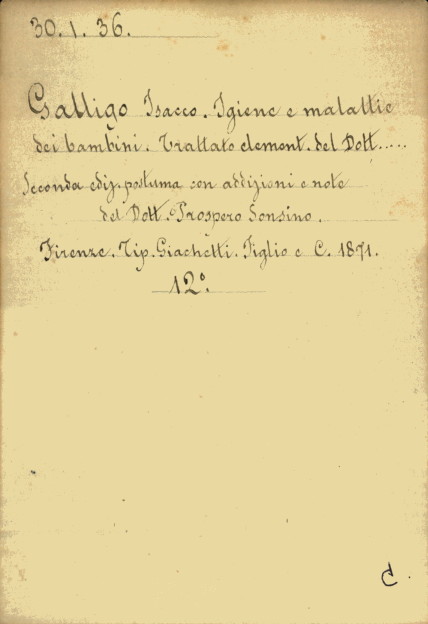 30.1.36.
Galligo Isacco. Igiene e malattie
dei bambini. Trattato element. del Dott.....
Seconda ediz. postuma con addizioni e note
del Dott. Prospero Sonsino.
Firenze. Tip. Giachetti. Figlio e C. 1871.
12°.
C.